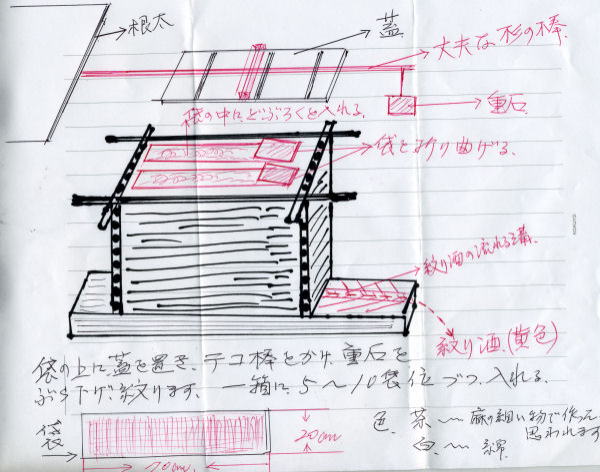 根太
蓋
丈夫な杉の棒.
重石
袋の中にどぶろくを入れる.
袋を折り曲げる.
絞り酒の流れる溝.
絞り酒.(黄色)
袋の上に蓋を置き、テコ棒をかけ、重石を
ぶら下げ、絞ります. 一箱に、5〜10袋位づつ入れる.
袋
20cm
70cm.
色. 茶.〜 麻の細い物で作った
思われます
白.〜 綿